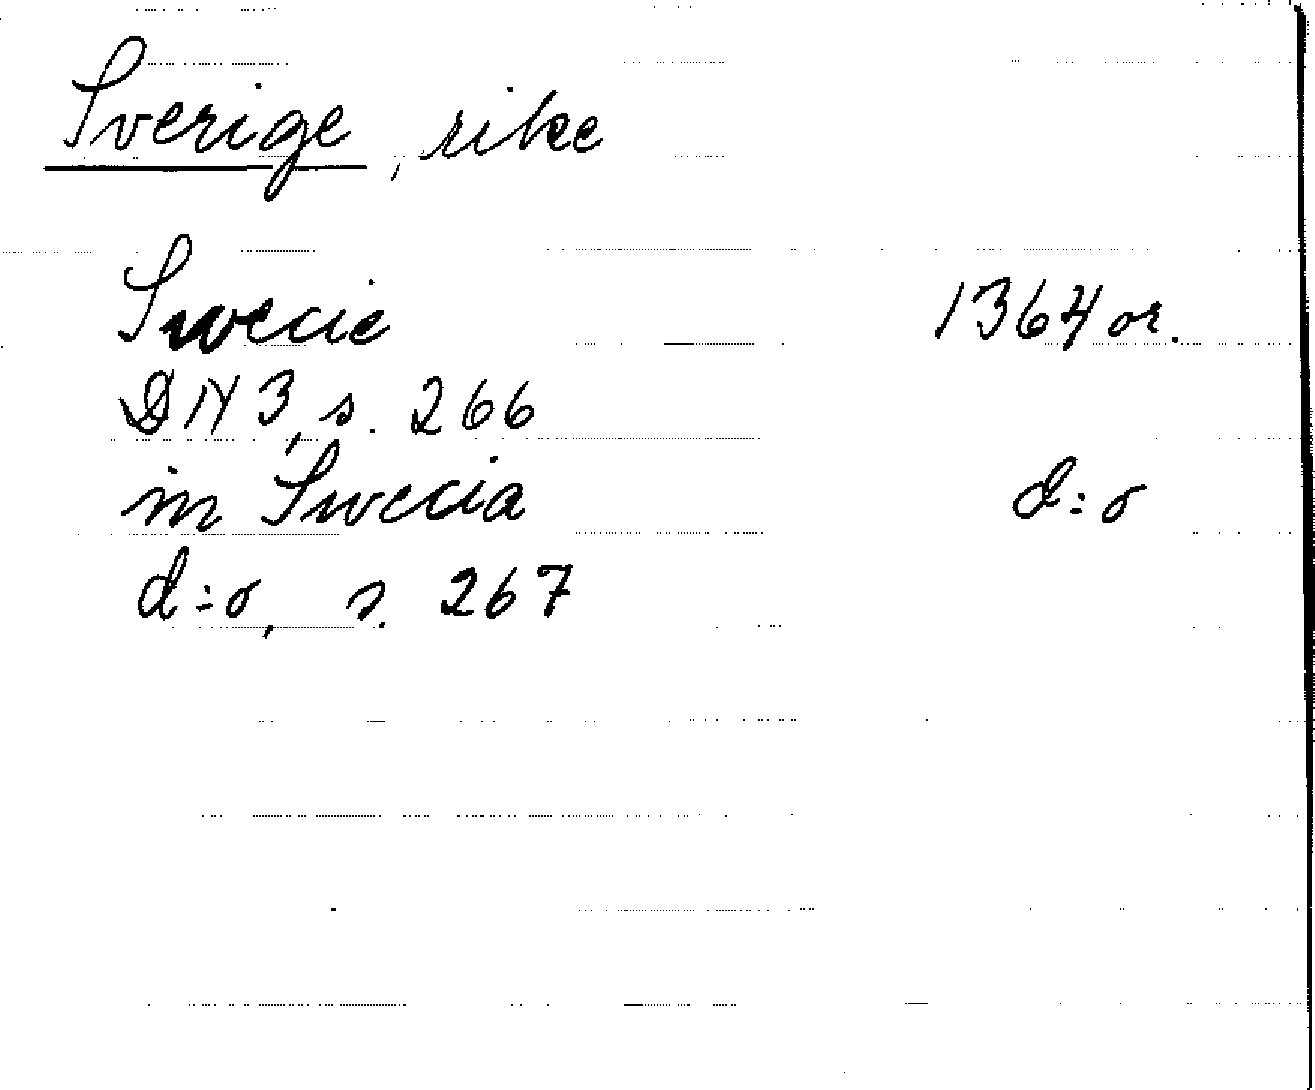 Sverige, rike
Swecie 1364 or.
DN 3, s. 266
in Swecia d:o
d:o, s. 267